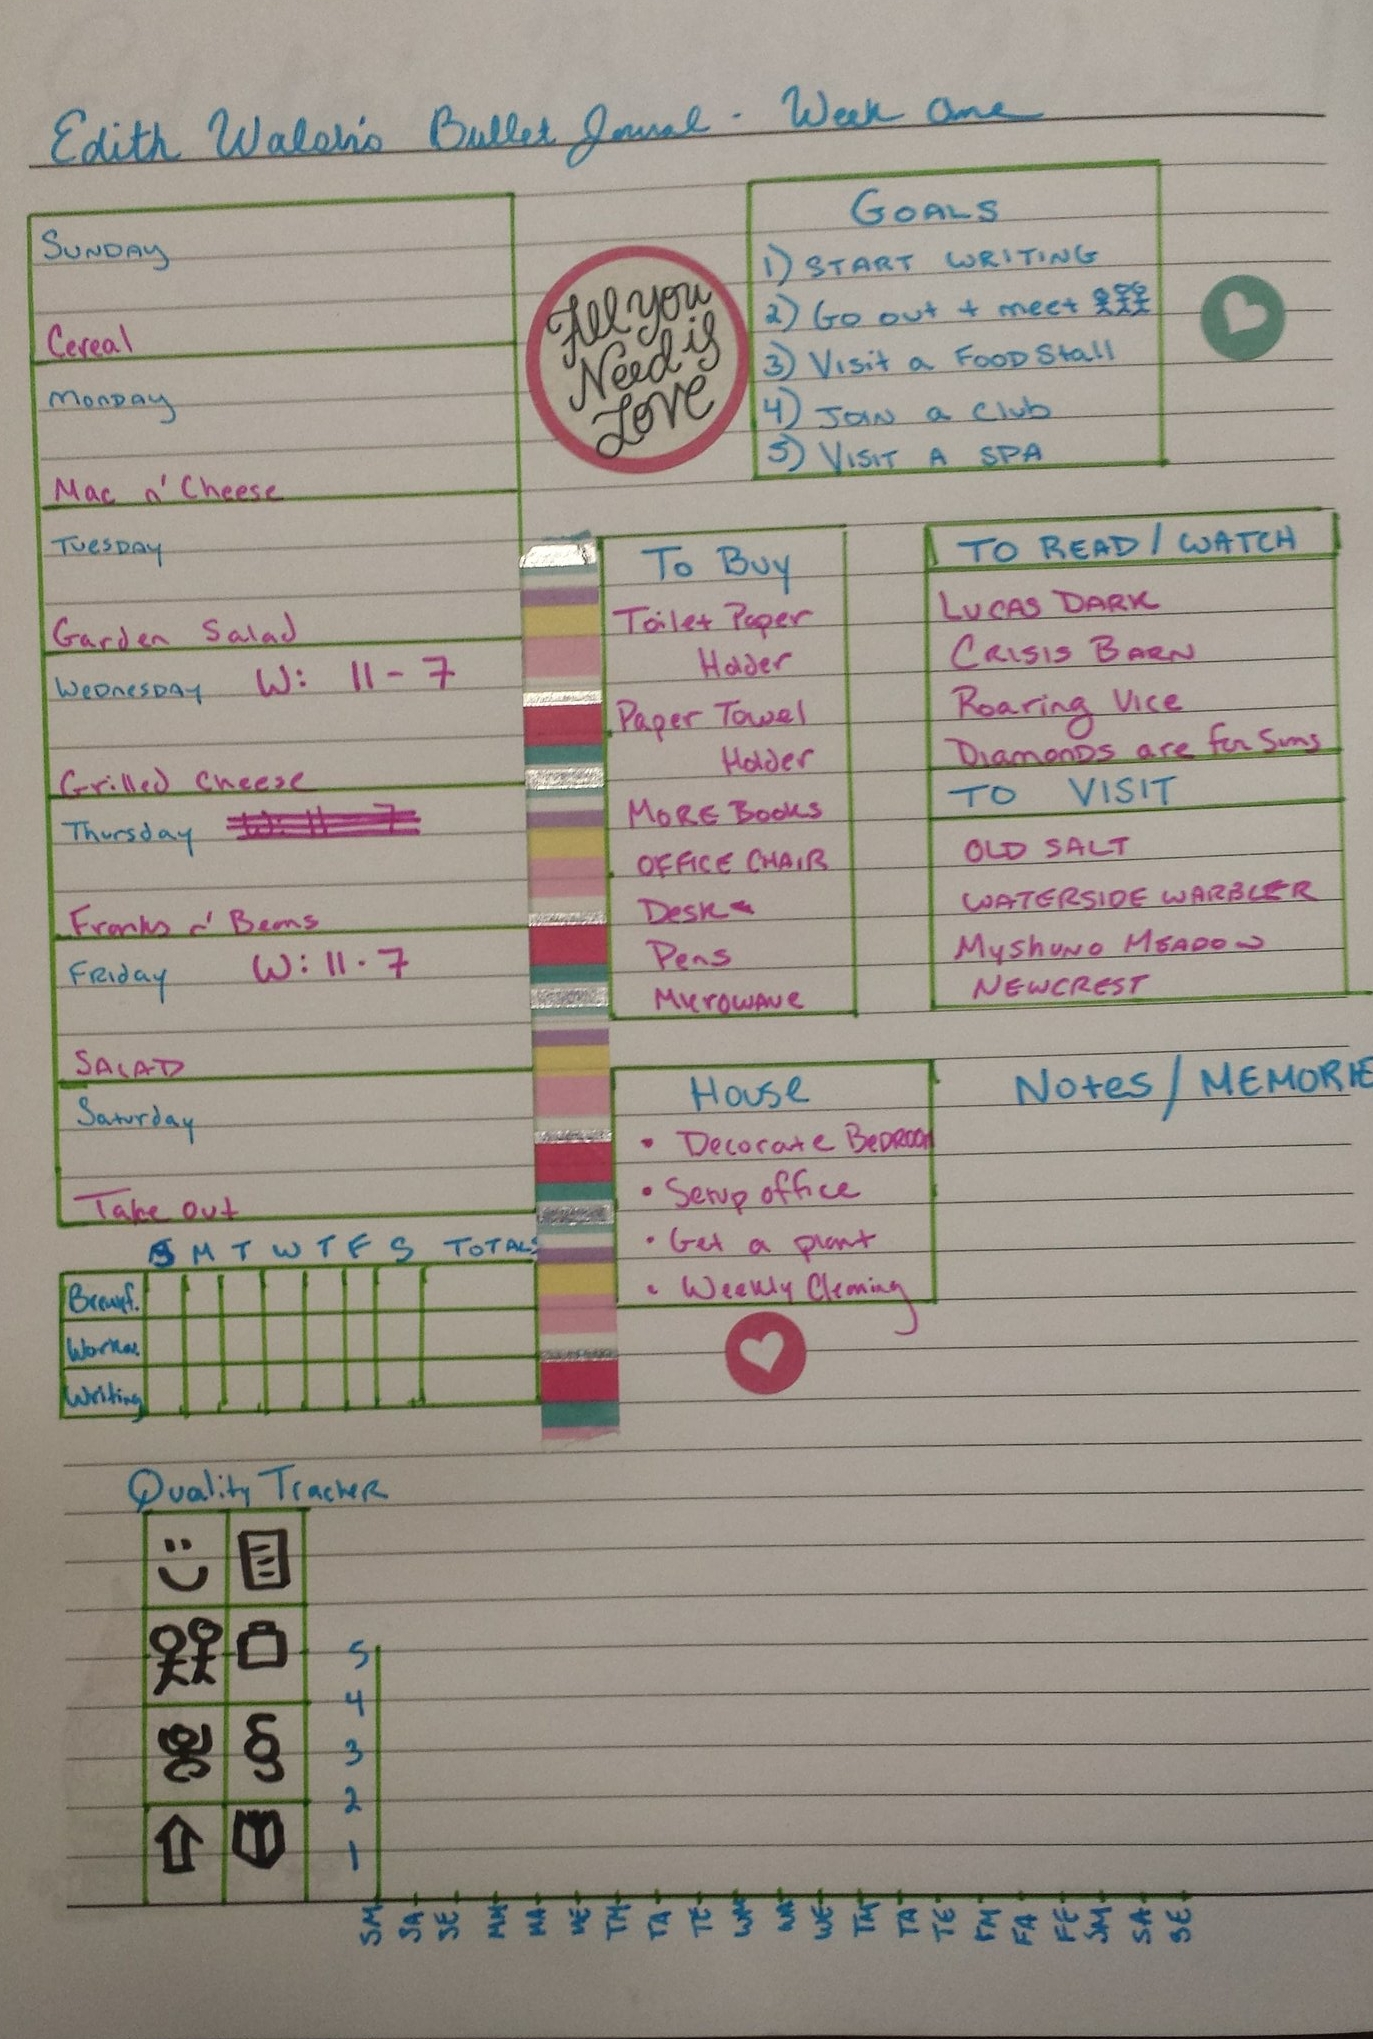 Edith Walsh's Bullet Journal - Week One
SUNDAY
Cereal
MONDAY
Mac n' Cheese
TUESDAY
Garden Salad
WEDNESDAY W: 11-7
Grilled Cheese
Thursday W: 11-7
Franks n' Beans
FRIDAY W: 11-7
SALAD
Saturday
Take out
S M T W T F S TOTALS
Breakf.
Workou.
Writing
All you
Need is
Love
GOALS
1) START WRITING
2) Go out + meet
3) Visit a Food Stall
4) JOIN a Club
5) VISIT A SPA
To Buy
Toilet Paper
Holder
Paper Towel
Holder
MORE BOOKS
OFFICE CHAIR
Desk
Pens
Microwave
TO READ / WATCH
LUCAS DARK
CRISIS BARN
Roaring Vice
Diamonds are for Sims
TO VISIT
OLD SALT
WATERSIDE WARBLER
MYSHUNO MEADOW
NEWCREST
House
• Decorate BEDROOM
• Setup office
• Get a plant
• Weekly Cleaning
Notes / MEMORIE
Quality Tracker
§
5
4
3
2
1
SM SA SE MM MA ME TM TA TE WM WA WE TM TA TE FM FA FE SM SA SE